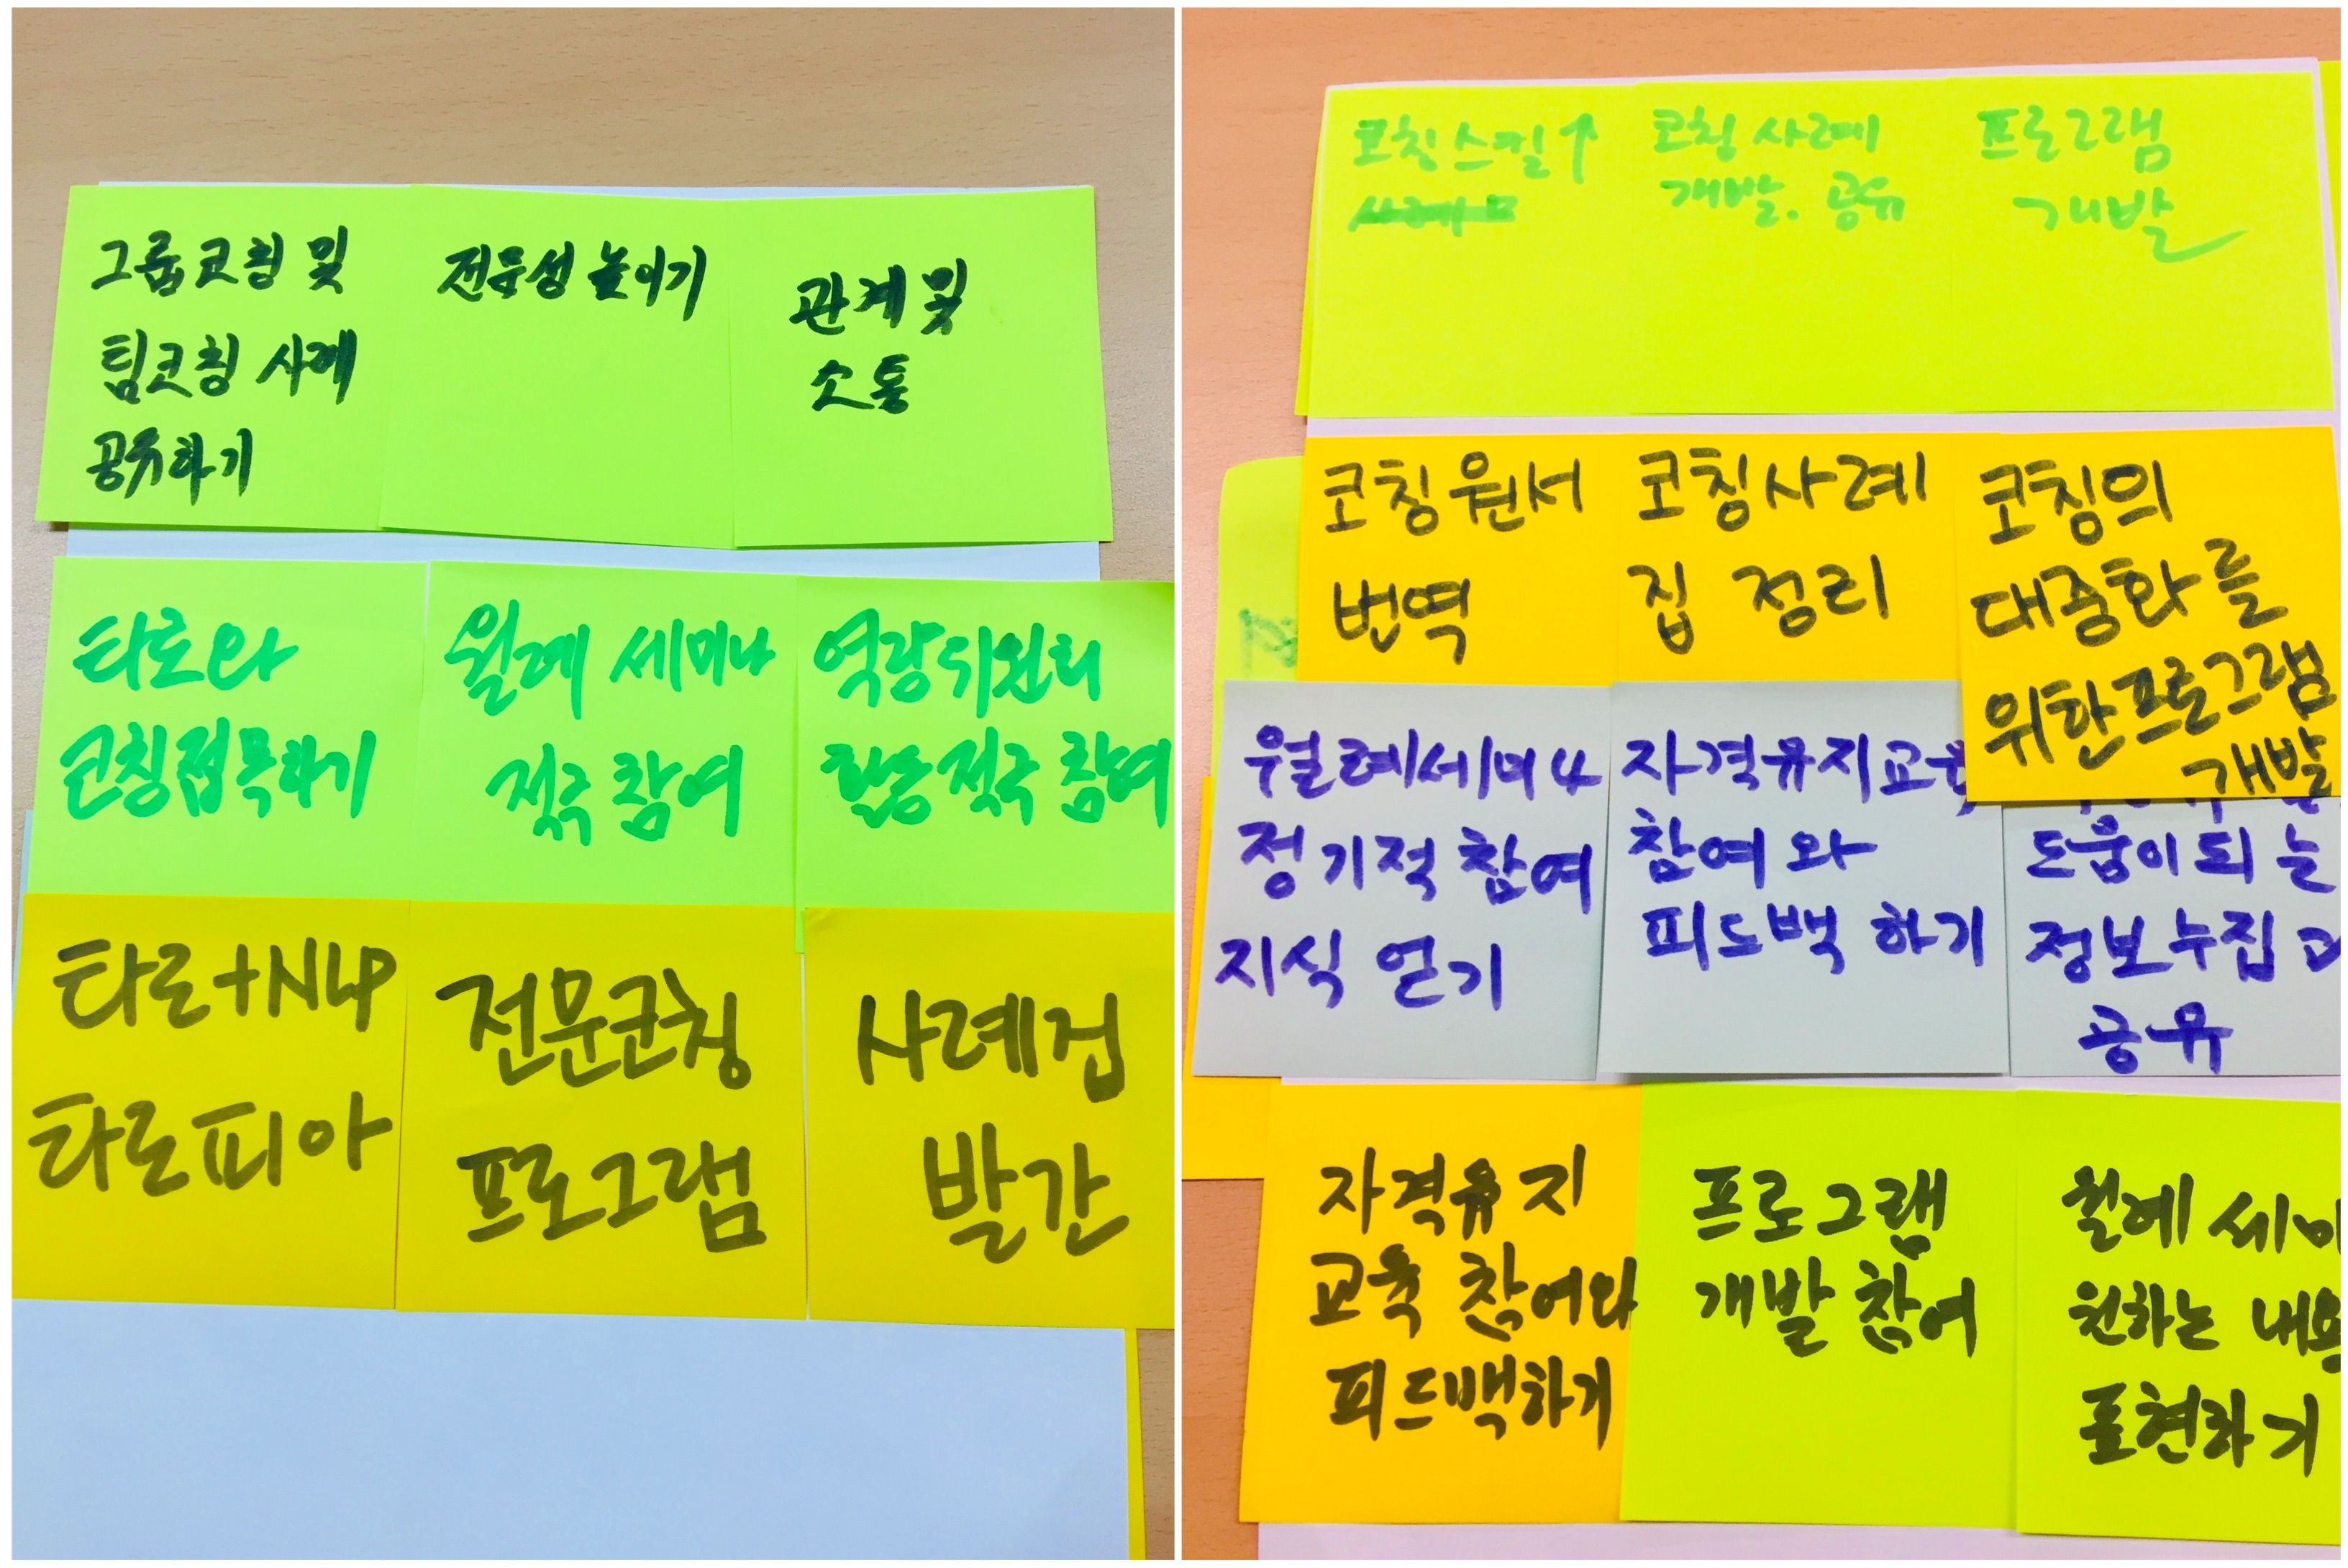 그룹코칭 및
팀코칭 사례
공유하기
전문성 높이기
관계 및
소통
타로와
코칭접목하기
월례 세미나
적극 참여
역량위원회
활동 적극 참여
타로+NLP
타로피아
전문코칭
프로그램
사례집
발간
코칭 스킬↑
코칭 사례
개발. 공유
프로그램
개발
코칭원서
번역
코칭사례
집 정리
코칭의
대중화를
위한 프로그램
개발
월례세미나
정기적 참여
지식 얻기
자격유지교육
참여 와
피드백 하기
도움이 되는
정보수집 과
공유
자격유지
교육 참여와
피드백하기
프로그램
개발 참여
월례 세미
원하는 내용
표현하기